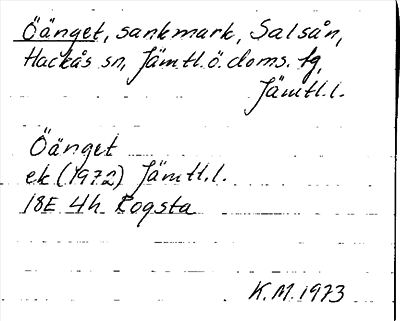 Öänget, sankmark, Salsån,
Hackås sn, Jämtl.ö. doms. tg,
Jämtl.l.
Öänget
ek (1972) Jämtl.l.
18E 4h Rogsta
K.M. 1973